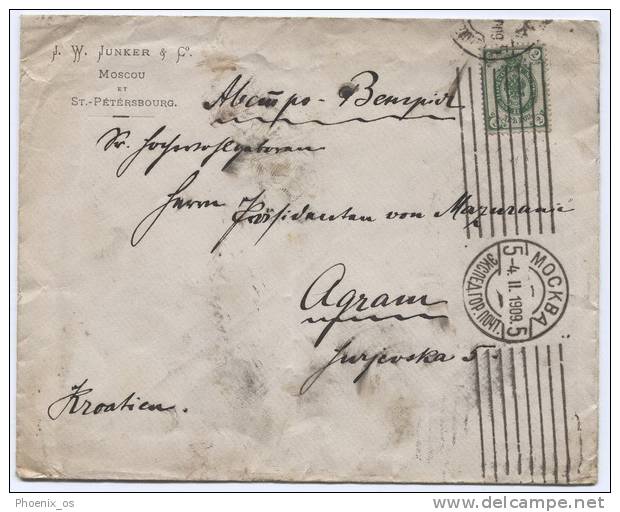 J. W. JUNKER & Cº.
MOSCOU
ET
ST.-PÉTERSBOURG.
Австро-Венгрія
Sr. Hochwohlgeboren
Herrn Präsidenten von Mazuranic
Agram
Jurjevska 5.
Kroatien.
МОСКВА
5-4.II.1909.5
1
ЭКСПЕД. ГОР. ПОЧТ.
Phoenix_os
delcampe.net